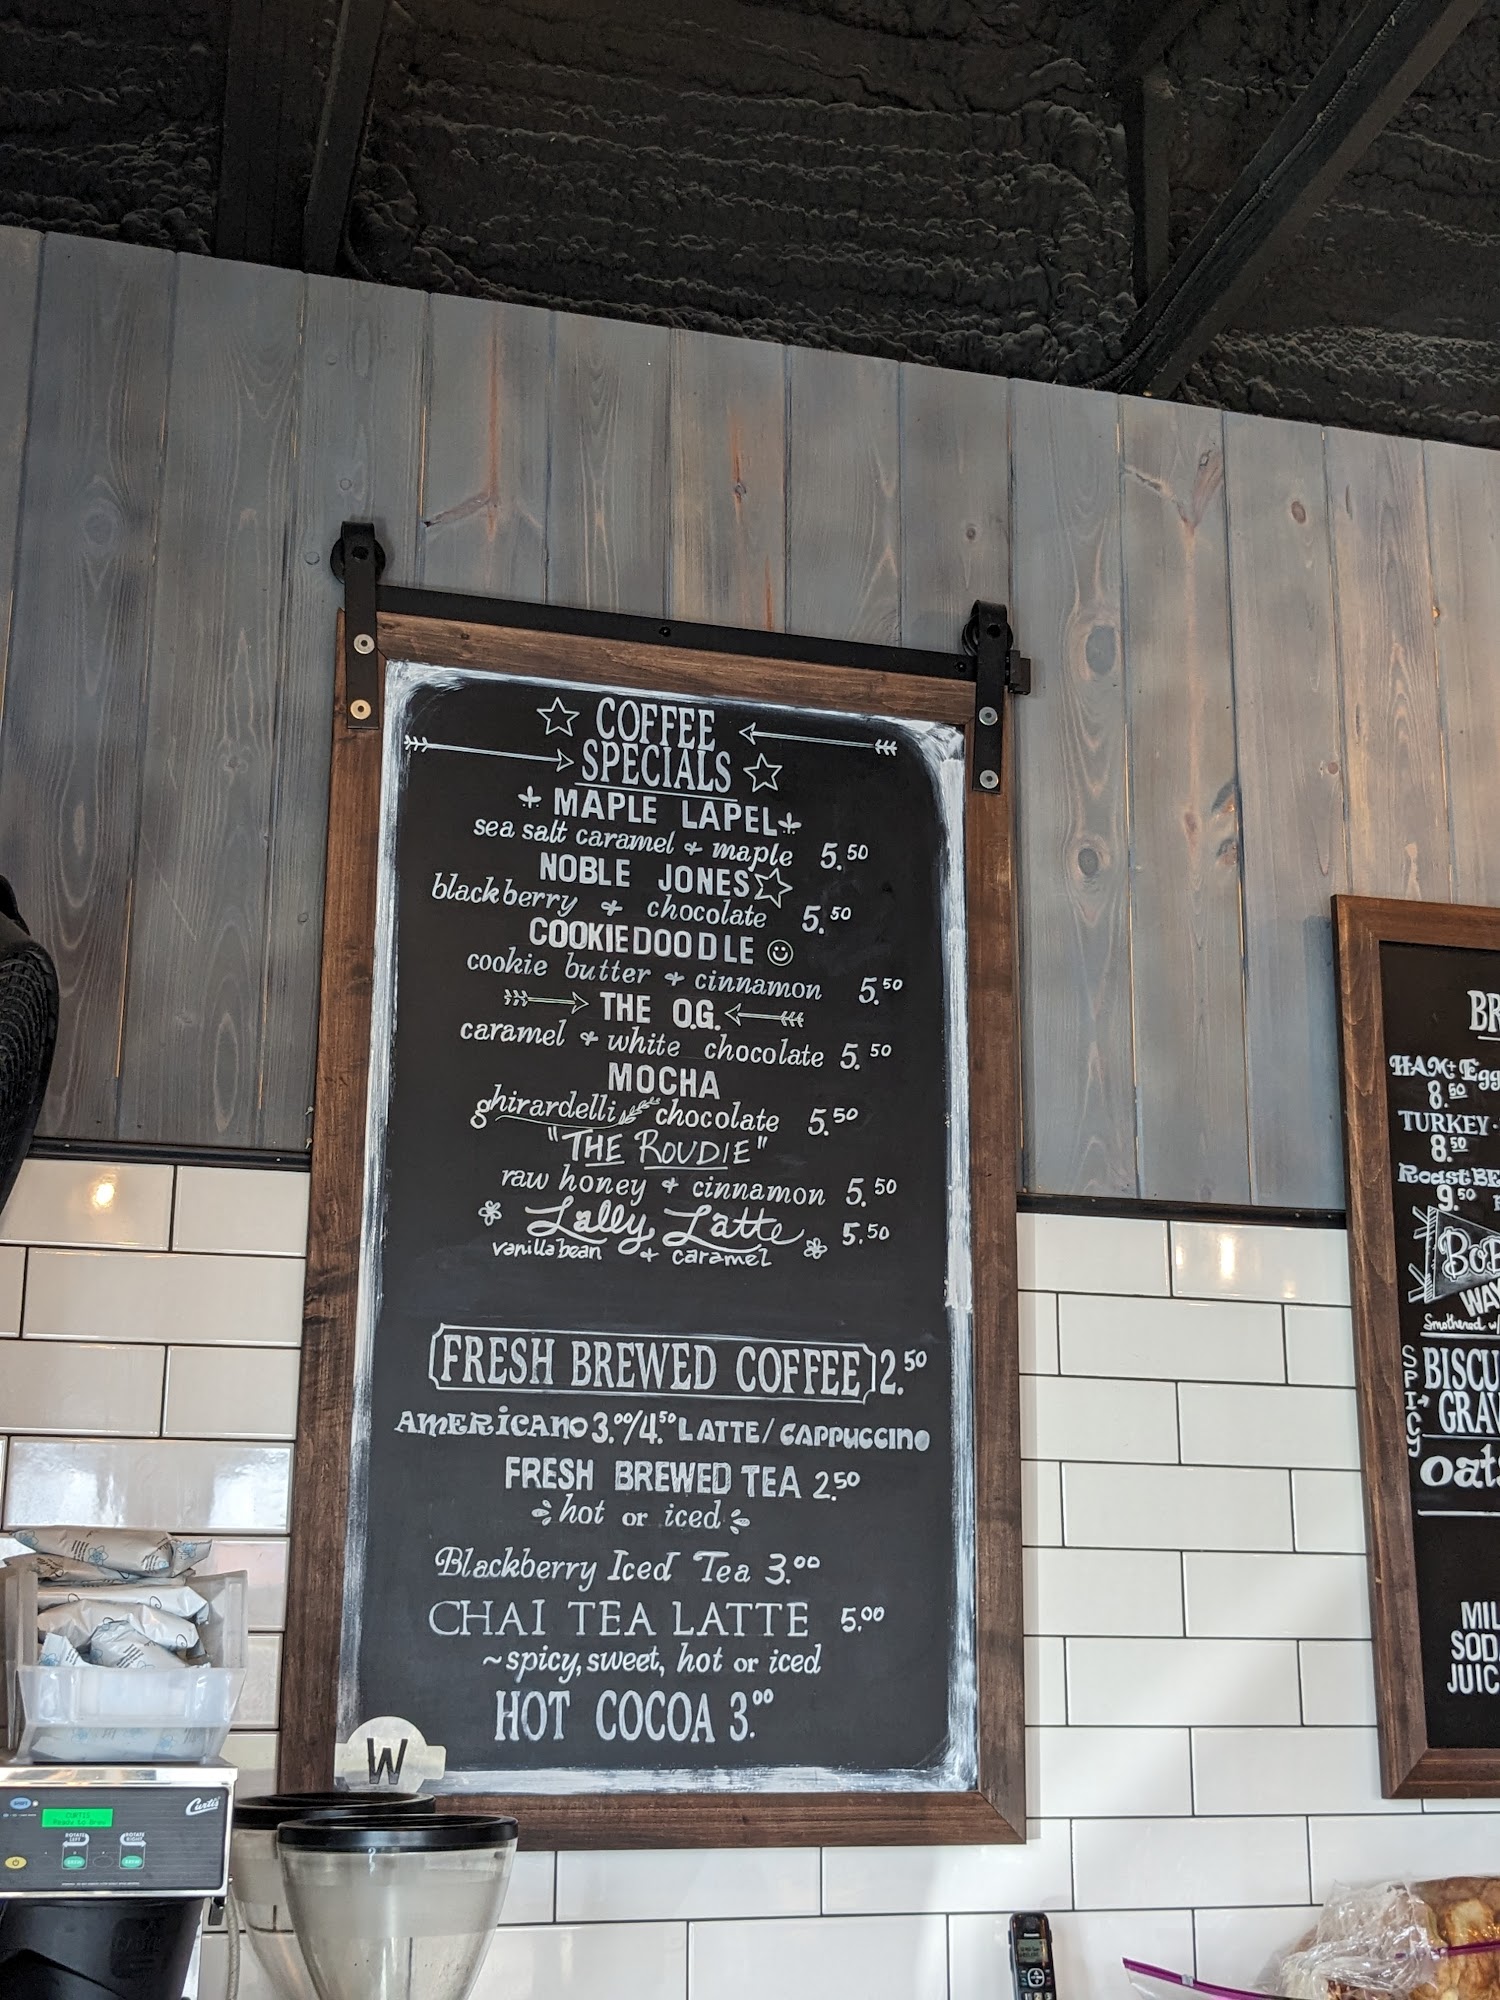 COFFEE
SPECIALS
MAPLE LAPEL
sea salt caramel + maple 5.50
NOBLE JONES
blackberry + chocolate 5.50
COOKIEDOODLE
cookie butter + cinnamon 5.50
THE O.G.
caramel + white chocolate 5.50
MOCHA
ghirardelli chocolate 5.50
"THE ROUDIE"
raw honey + cinnamon 5.50
Lally Latte 5.50
vanilla bean + caramel
FRESH BREWED COFFEE 2.50
AMERICANO 3.00/4.50 LATTE/CAPPUCCINO
FRESH BREWED TEA 2.50
hot or iced
Blackberry Iced Tea 3.00
CHAI TEA LATTE 5.00
~spicy, sweet, hot or iced
HOT COCOA 3.00
W
Curtis
CURTIS
Ready to Brew
BR
HAM + Egg
8.50
TURKEY
8.50
Roast BE
9.50
BOB
WAY
Smothered w/
SPICY
BISCU
GRAV
Oat
MIL
SOD
JUIC